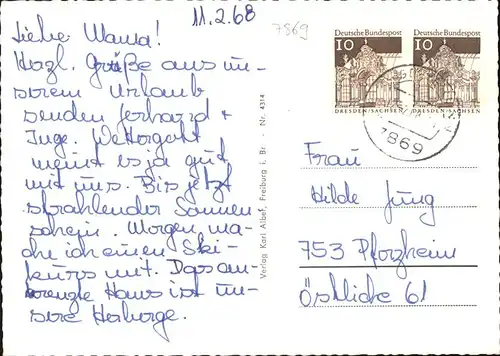 11.2.68
7869
Liebe Mama!
Herzl. Grüße aus un-
serem Urlaub
senden Gerhard +
Inge. Wettergott
meint es ja gut
mit uns. Bis jetzt
strahlender Sonnen-
schein. Morgen ma-
che ich einen Ski-
kurs mit. Das an-
kreuzte Haus ist un-
sere Herberge.
Verlag Karl Alber, Freiburg i. Br. - Nr. 4314
Deutsche Bundespost
10
DRESDEN/SACHSEN
Deutsche Bundespost
10
DRESDEN/SACHSEN
7869
Frau
Hilde Jung
753 Pforzheim
Östliche 61